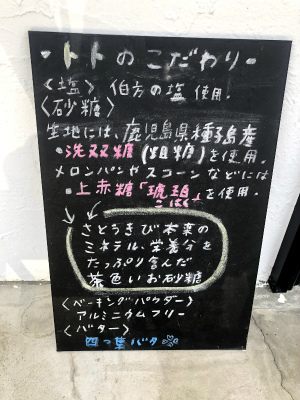 -トトのこだわり-
〈塩〉 伯方の塩 使用!
〈砂糖〉
生地には、鹿児島県種子島産
・洗双糖(粗糖)を使用。
メロンパンやスコーンなどには
・上赤糖「琥珀」を使用。
こはく
さとうきび本来の
ミネラル、栄養分を
たっぷり含んだ
茶色いお砂糖
〈ベーキングパウダー〉
アルミニウムフリー
〈バター〉
四つ葉バター